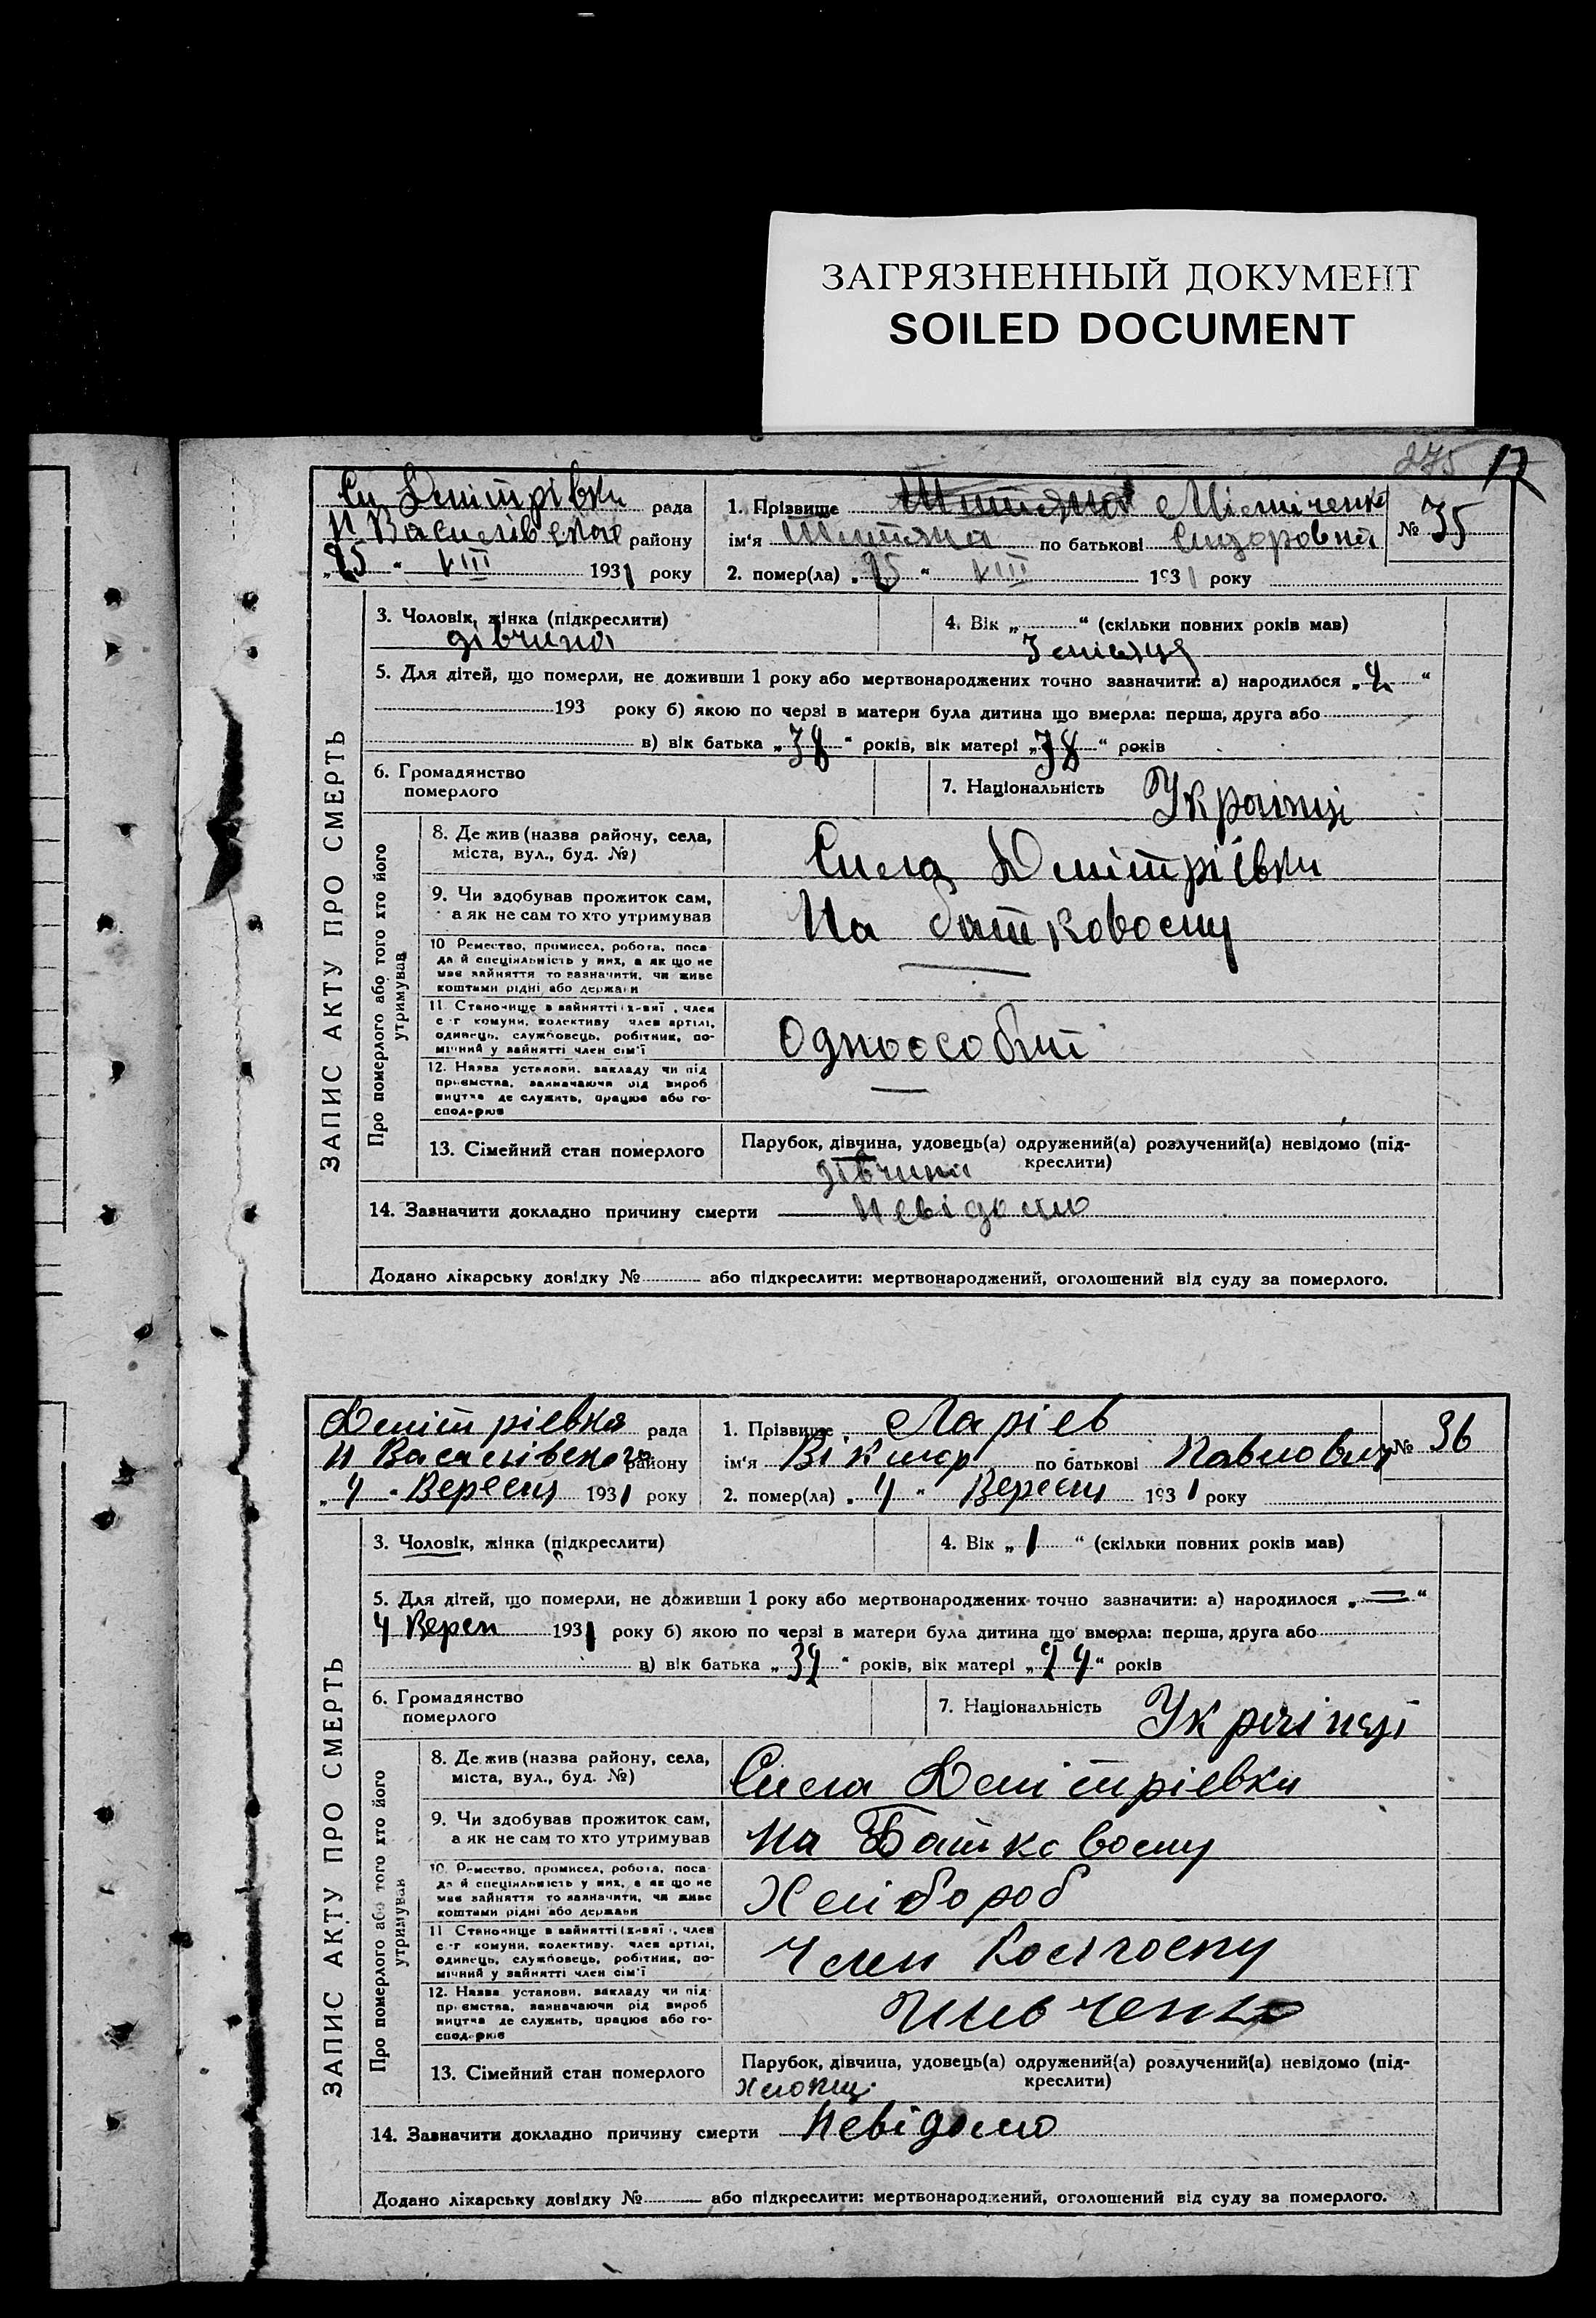 ЗАГРЯЗНЕННЫЙ ДОКУМЕНТ
SOILED DOCUMENT
275 17
ЗАПИС АКТУ ПРО СМЕРТЬ
Дмітрівки рада
Н Василівського району
„25“ VIII 1931 року
1. Прізвище
№ 35
ім‘я Титяна по батькові Сидоровна
2. помер(ла) „25“ VIII 1931 року
3. Чоловік, жінка (підкреслити)
дівчина
4. Вік „ “ (скільки повних років мав)
3 місяця
5. Для дітей, що померли, не доживши 1 року або мертвонароджених точно зазначити: а) народилося „ “
193 року б) якою по черзі в матери була дитина що вмерла: перша, друга або
в) вік батька „38“ років, вік матері „38“ років
6. Громадянство
померлого
7. Національність Українці
Про померлого або того хто його
утримував
8. Де жив (назва району, села,
міста, вул., буд. №)
Села Дмітріівки
9. Чи здобував прожиток сам,
а як не сам то хто утримував
На батковому
10 Ремество, промисел, робота, поса-
да й спеціяльність у них, а як що не
має зайняття то зазначити, чи живе
коштами рідні або держави
11. Становище в зайнятті , член
с.-г комуни, колективу член артілі,
одинець, службовець, робітник, по-
мічний у зайнятті член сім‘ї
Одноособни
12. Назва установи, закладу чи під
приємства, зазначаючи рід вироб
ництва де служить, працює або го-
сподарює
13. Сімейний стан померлого
Парубок, дівчина, удовець(а) одружений(а) розлучений(а) невідомо (під-
креслити)
дівчина
14. Зазначити докладно причину смерти Невідомо
Додано лікарську довідку № або підкреслити: мертвонароджений, оголошений від суду за померлого.
ЗАПИС АКТУ ПРО СМЕРТЬ
Дмітріевка рада
Н Василівського району
„4“ Вересня 1931 року
1. Прізвище Ларіев
№ 36
ім‘я Віктор по батькові Павлович
2. помер(ла) „4“ Вересня 1931 року
3. Чоловік, жінка (підкреслити)
4. Вік „1“ (скільки повних років мав)
5. Для дітей, що померли, не доживши 1 року або мертвонароджених точно зазначити: а) народилося „=“
4 Верен 1931 року б) якою по черзі в матери була дитина що вмерла: перша, друга або
в) вік батька „39“ років, вік матері „ “ років
6. Громадянство
померлого
7. Національність Українці
Про померлого або того хто його
утримував
8. Де жив (назва району, села,
міста, вул., буд. №)
Села Дмітріевки
9. Чи здобував прожиток сам,
а як не сам то хто утримував
На Батьковому
10. Ремество, промисел, робота, поса-
да й спеціяльність у них, а як що не
має зайняття то зазначити, чи живе
коштами рідні або держави
Хлібороб
11 Становище в зайнятті , член
с.-г комуни, колективу, член артілі,
одинець, службовець, робітник, по-
мічний у зайнятті член сім‘ї
Член Колгоспу
12. Назва установи, закладу чи під-
приємства, зазначаючи рід вироб
ництва де служить, працює або го-
сподарює
13. Сімейний стан померлого
Парубок, дівчина, удовець(а) одружений(а) розлучений(а) невідомо (під-
креслити)
Хлопець
14. Зазначити докладно причину смерти Невідомо
Додано лікарську довідку № або підкреслити: мертвонароджений, оголошений від суду за померлого.